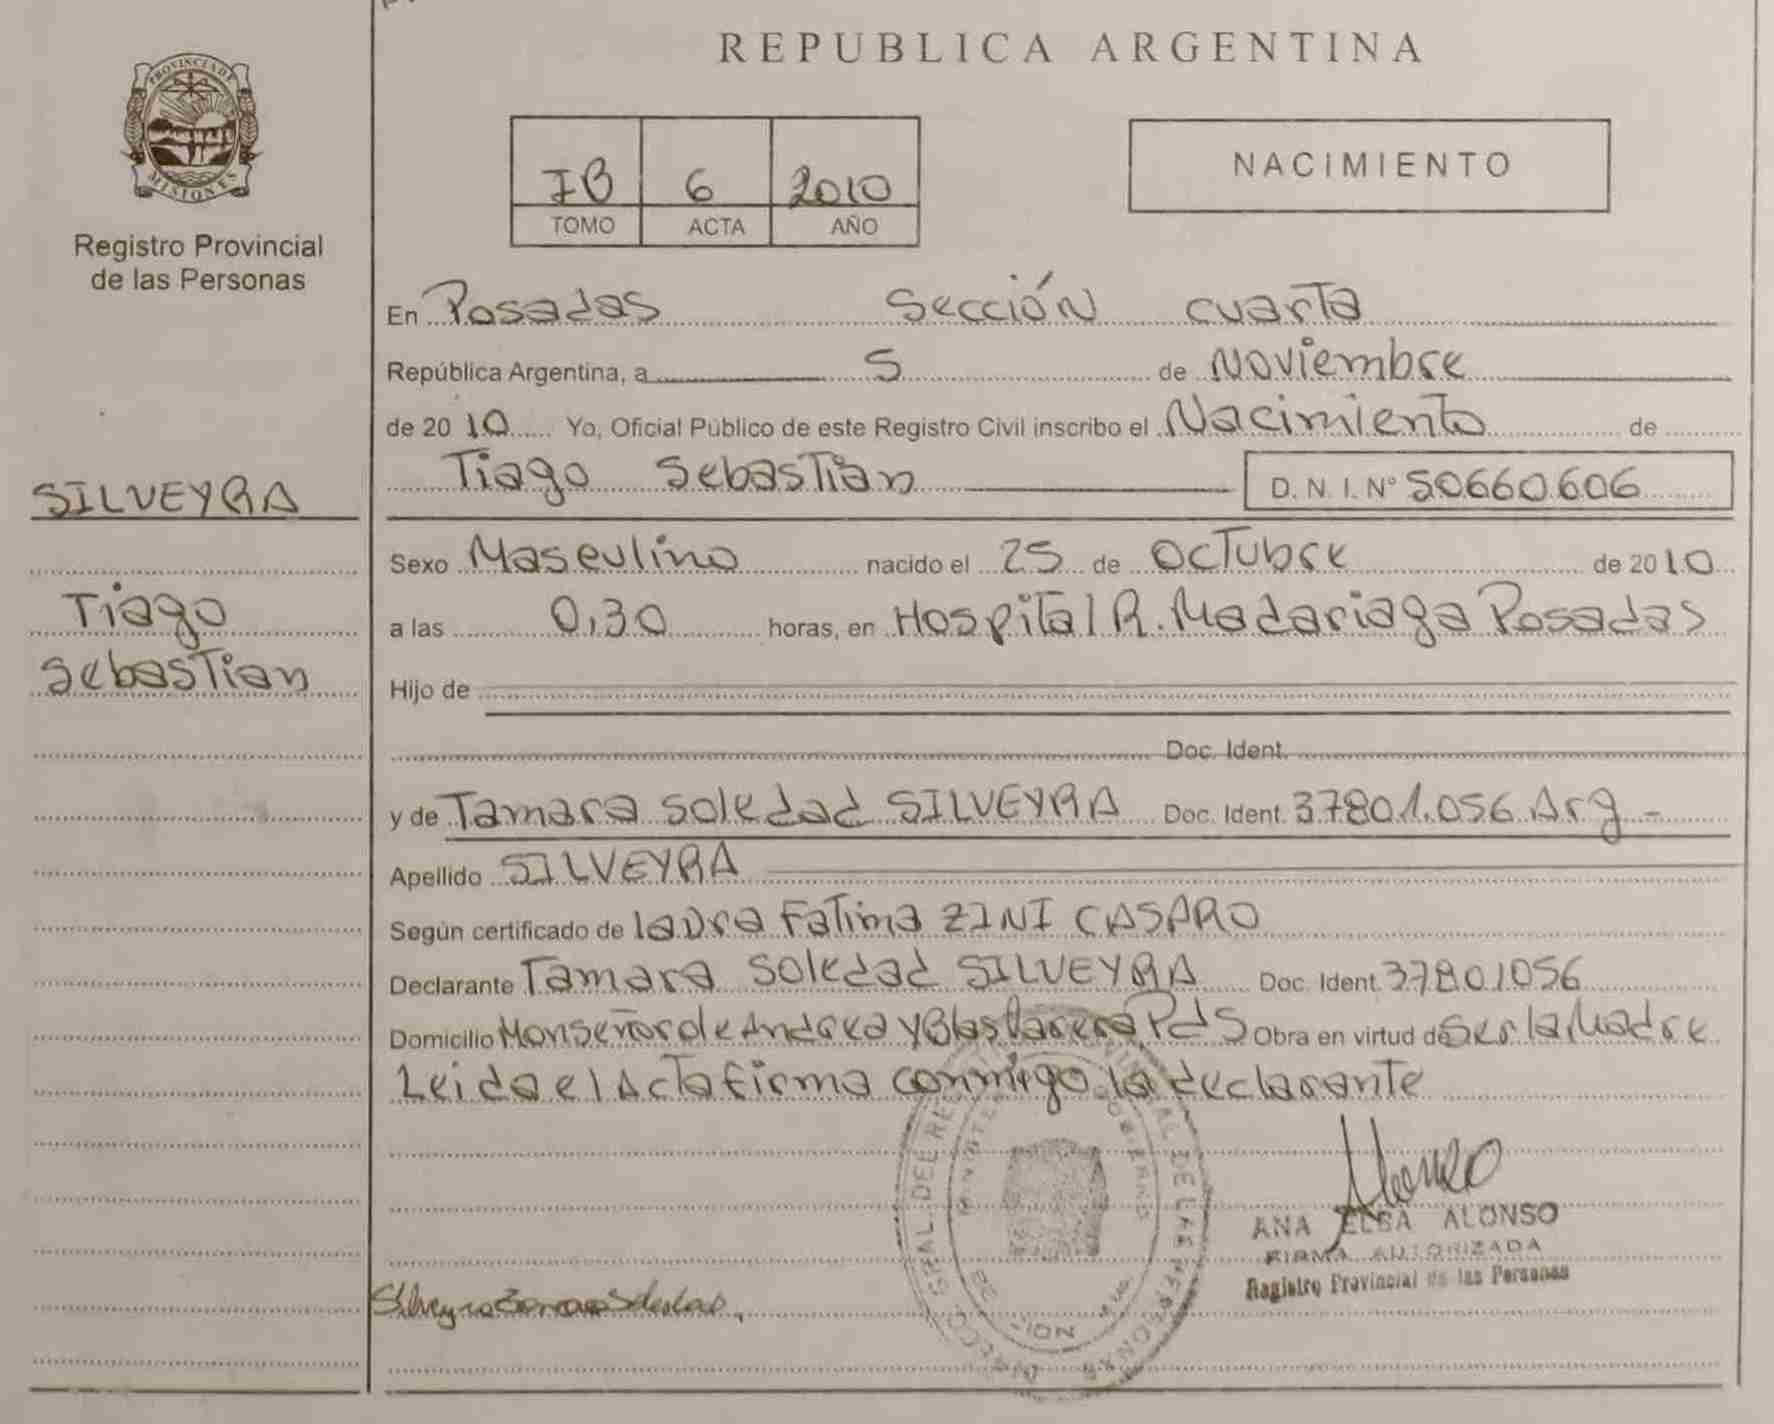 REPUBLICA ARGENTINA
PROVINCIA DE
MISIONES
Registro Provincial
de las Personas
6 2010
TOMO ACTA AÑO
NACIMIENTO
En Posadas Sección cuarta
República Argentina, a 5 de Noviembre
de 2010 Yo, Oficial Público de este Registro Civil inscribo el Nacimiento de
Tiago Sebastian D. N. I. Nº 50660606
SILVEYRA
Tiago
Sebastian
Sexo Masculino nacido el 25 de Octubre de 2010
a las 0,30 horas, en Hospital R. Madariaga Posadas
Hijo de
Doc. Ident.
y de Tamara Soledad SILVEYRA Doc. Ident. 37801.056 Arg -
Apellido SILVEYRA
Según certificado de Laura Fatima ZINI CASARO
Declarante Tamara Soledad SILVEYRA Doc. Ident. 37801056
Domicilio Monseñor de Andrea y Blas Parera Pdas Obra en virtud de Ser la Madre
Leida el Acta firma conmigo la declarante
ANA ELBA ALONSO
FIRMA AUTORIZADA
Registro Provincial de las Personas